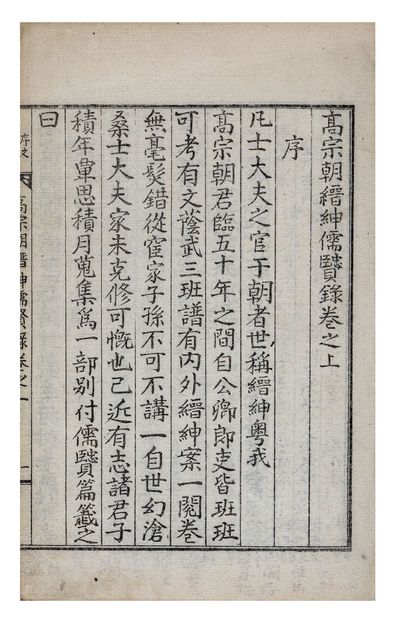 高宗朝縉紳儒賢錄卷之上
序
凡士大夫之官于朝者世稱縉紳粤我
高宗朝君臨五十年之間自公卿郎吏皆班班
可考有文蔭武三班譜有內外縉紳案一閱卷
無毫髮錯從宦家子孫不可不講一自世幻滄
桑士大夫家未克修可慨也已近有志諸君子
積年單思積月蒐集爲一部別付儒賢篇籤之
曰
序文
高宗朝縉紳儒賢錄卷之一